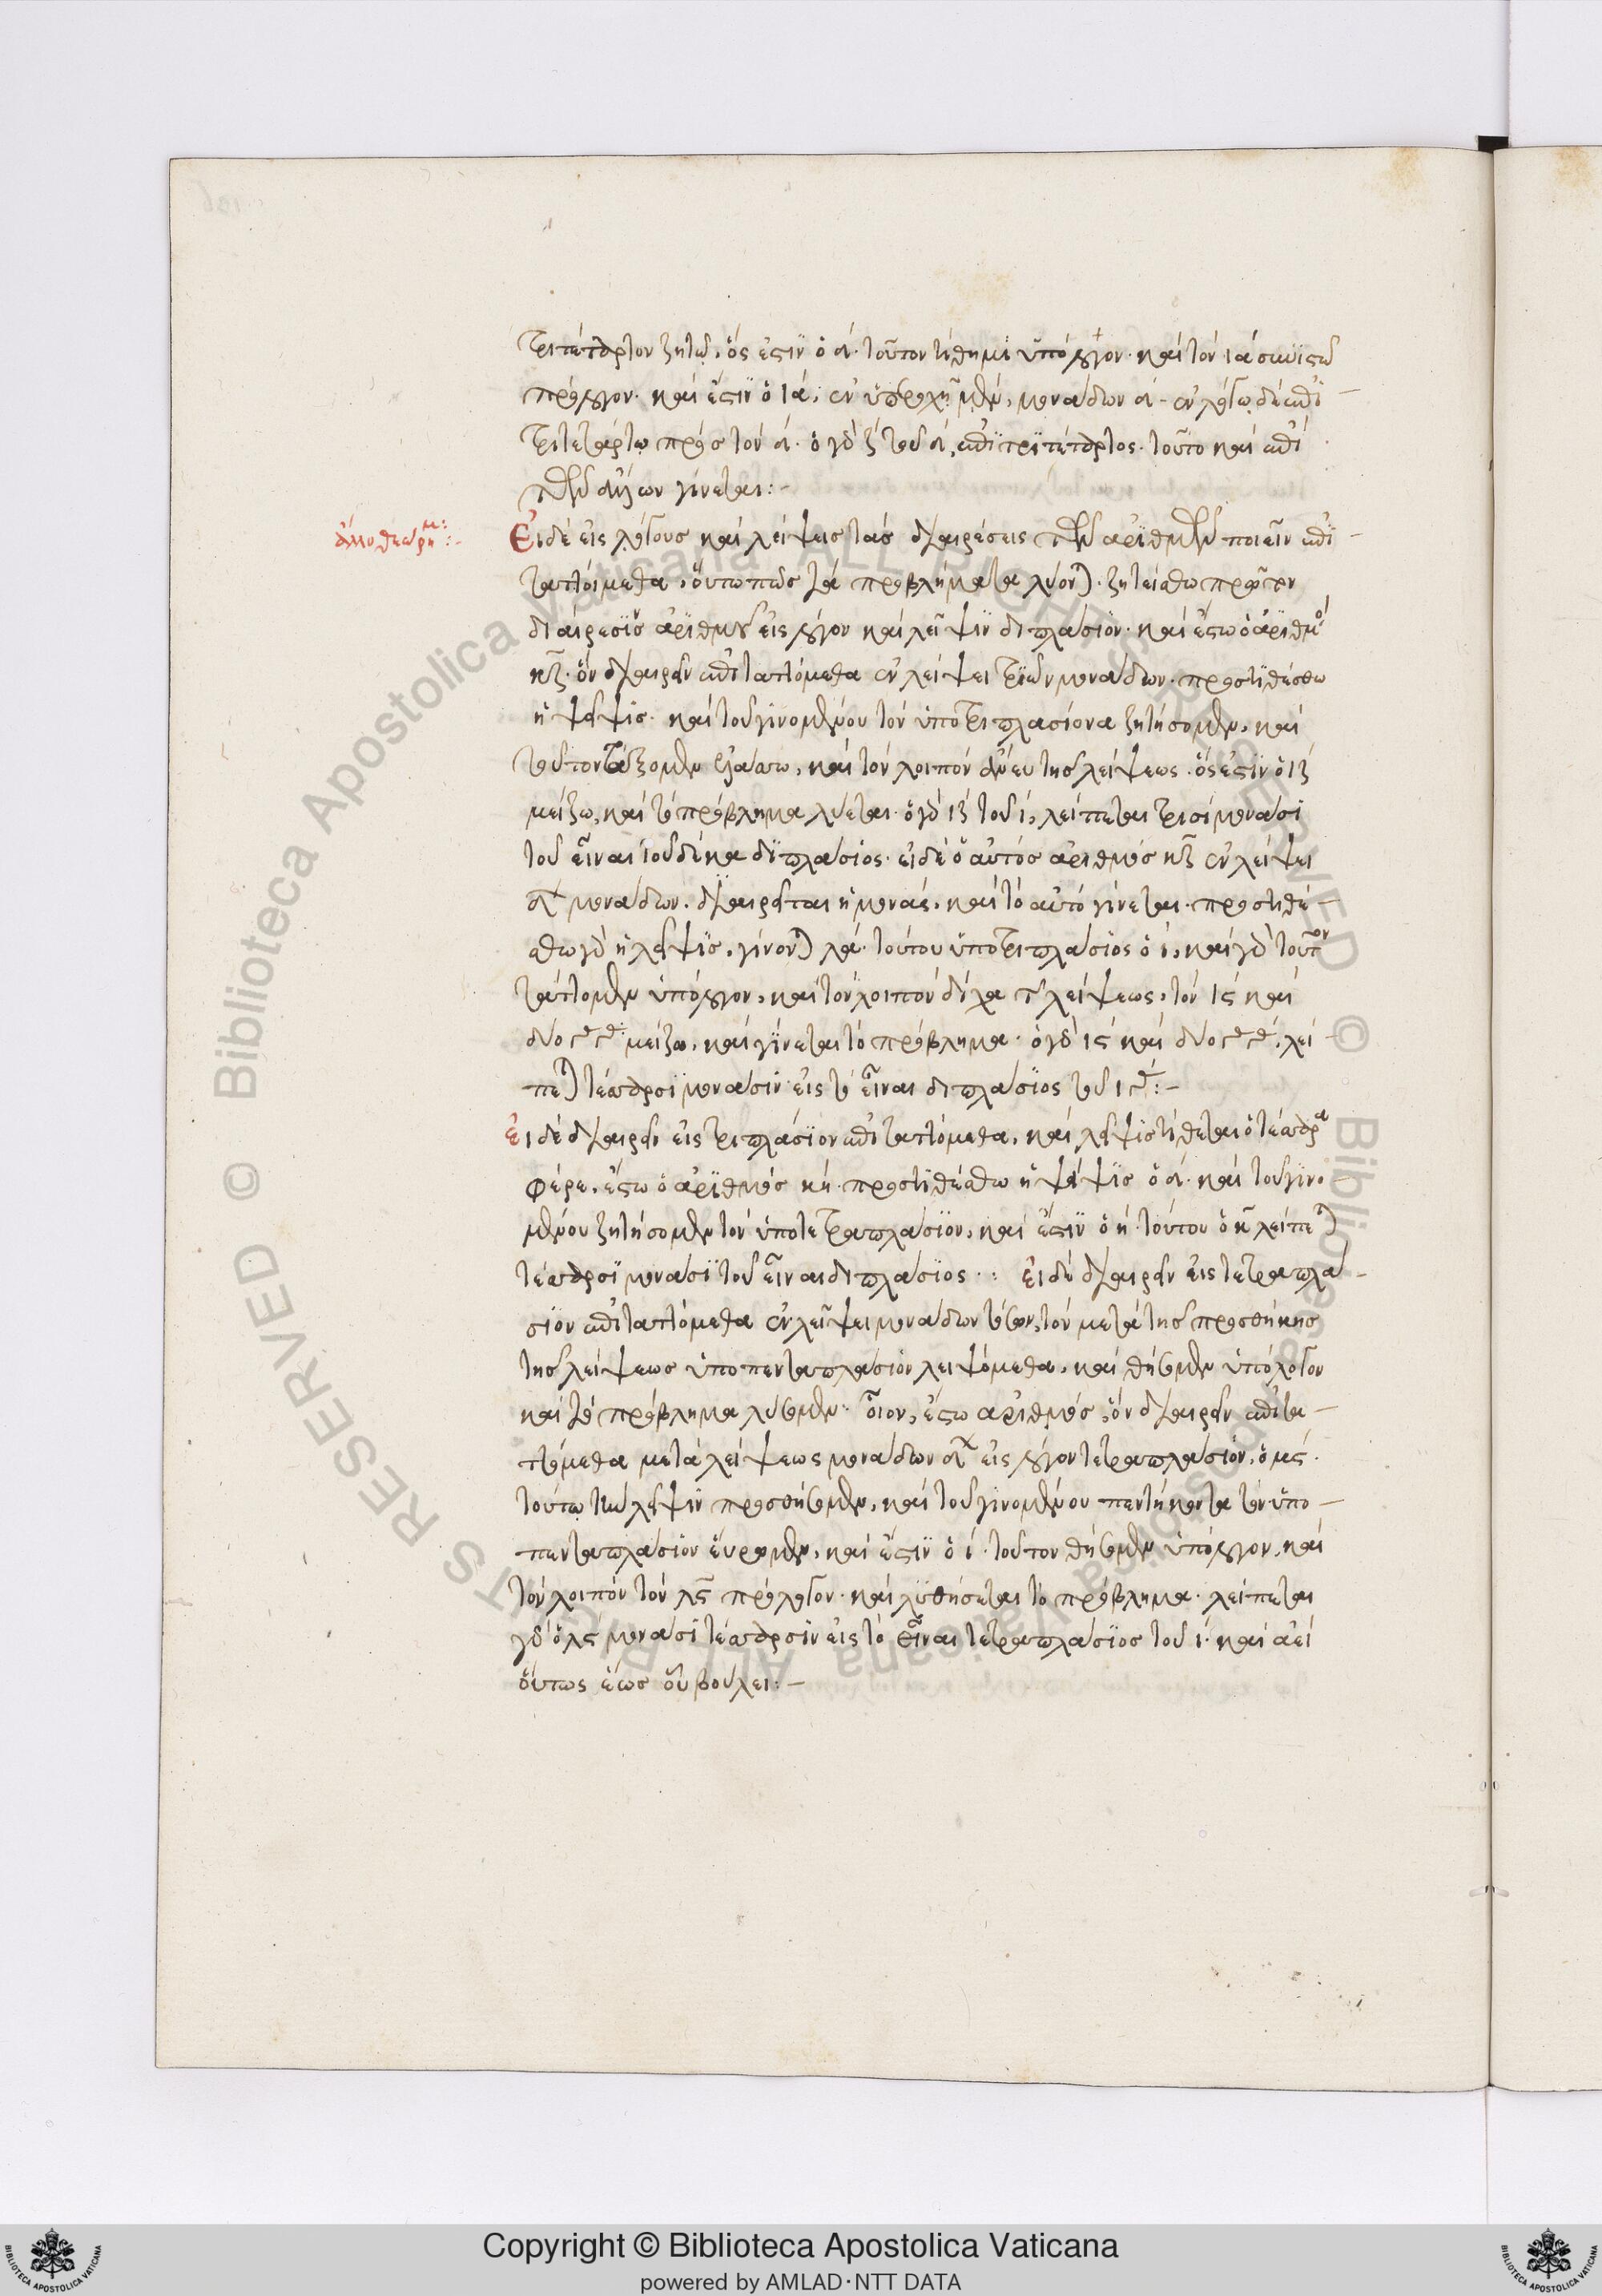 τριτέταρτον ζητῶ, ὅς ἐστιν ὁ δ. τοῦτον τίθημι ὑπόλογον. καὶ τὸν ιά συνιστῶ
πρόλογον. καὶ ἔστιν ὁ ιά, ἐν ὑπεροχῇ μὲν, μονάδων δ. ἐν λόγῳ δὲ ἐπι
τριτετάρτῳ πρὸς τὸν δ. ὁ γὰρ ζ τοῦ δ, ἐπιτριτέταρτος. τοῦτο καὶ ἐπὶ
τῶν ἄλλων γίνεται:-
ἄλλο θεώρημ:-
Εἰ δὲ εἰς λόγους καὶ λείψεις τὰς διαιρέσεις τῶν ἀριθμῶν ποιεῖν ἐπι
ταττόμεθα, οὕτω πως τὰ προβλήματα λύονται. ζητείσθω πρῶτον
διαίρεσιν ἀριθμοῦ εἰς λόγον καὶ λεῖψιν διπλάσιον. καὶ ἔστω ὁ ἀριθμὸς
κζ. ὃν διαιρεῖν ἐπιταττόμεθα ἐν λείψει τριῶν μονάδων. προστιθέσθω
ἡ λεῖψις. καὶ τοῦ γινομένου τὸν ὑποτριπλασίονα ζητήσομεν, καὶ
τοῦτον τάξομεν ἐλάττω, καὶ τὸν λοιπὸν ἄνευ τῆς λείψεως. ὅς ἐστιν ὁ ιζ
μείζω, καὶ τὸ πρόβλημα λύεται. ὁ γὰρ ιζ τοῦ ι, λείπεται τρισὶ μονάσι
τοῦ εἶναι τοῦ δέκα διπλάσιος. εἰ δὲ ὁ αὐτὸς ἀριθμὸς κζ ἐν λείψει
δ μονάδων. διαιρεῖται ἡ μονάς, καὶ τὸ αὐτὸ γίνεται. προστιθέ
σθω γὰρ ἡ λεῖψις, γίνονται λά. τούτου ὑποτριπλάσιος ὁ ι, καὶ γὰρ τοῦτον
τάττομεν ὑπόλογον, καὶ τὸν λοιπὸν δίχα τῆς λείψεως, τὸν ις καὶ
δύο μείζω, καὶ γίνεται τὸ πρόβλημα. ὁ γὰρ ις καὶ δύο, λεί
πεται τέσσαρσι μονάσιν εἰς τὸ εἶναι διπλάσιος τοῦ ι:-
εἰ δὲ διαιρεῖν εἰς τριπλάσιον ἐπιταττόμεθα, καὶ λεῖψις τίθεται ὁ τέσσαρα
φέρε, ἔστω ὁ ἀριθμὸς κή. προστιθέσθω ἡ λεῖψις ὁ δ. καὶ τοῦ γινο
μένου ζητήσομεν τὸν ὑποτετραπλάσιον, καὶ ἔστιν ὁ ή. τούτου ὁ κ λείπεται
τέσσαρσι μονάσι τοῦ εἶναι διπλάσιος.: εἰ δὲ διαιρεῖν εἰς τετραπλά
σιον ἐπιταττόμεθα ἐν λεῖψει μονάδων τόσων, τὸν μετὰ τῆς προσθήκης
τῆς λείψεως ὑποπενταπλάσιον λειψόμεθα, καὶ θήσομεν ὑπόλογον
καὶ τὸ πρόβλημα λύσομεν. οἷον, ἔστω ἀριθμός, ὃν διαιρεῖν ἐπιτα
ττόμεθα μετὰ λείψεως μονάδων δ εἰς λόγον τετραπλάσιον, ὁ μς.
τούτῳ τὴν λεῖψιν προσθήσομεν, καὶ τοῦ γινομένου πεντήκοντα τὸν ὑπο
πενταπλάσιον εὕρομεν, καὶ ἔστιν ὁ ι. τοῦτον θήσομεν ὑπόλογον, καὶ
τὸν λοιπὸν τὸν λς πρόλογον. καὶ λυθήσεται τὸ πρόβλημα. λείπεται
γὰρ ὁ λς μονάσι τέσσαρσιν εἰς τὸ εἶναι τετραπλάσιος τοῦ ι. καὶ ἀεὶ
οὕτως ἕως οὗ βούλει:-
Copyright © Biblioteca Apostolica Vaticana
powered by AMLAD·NTT DATA